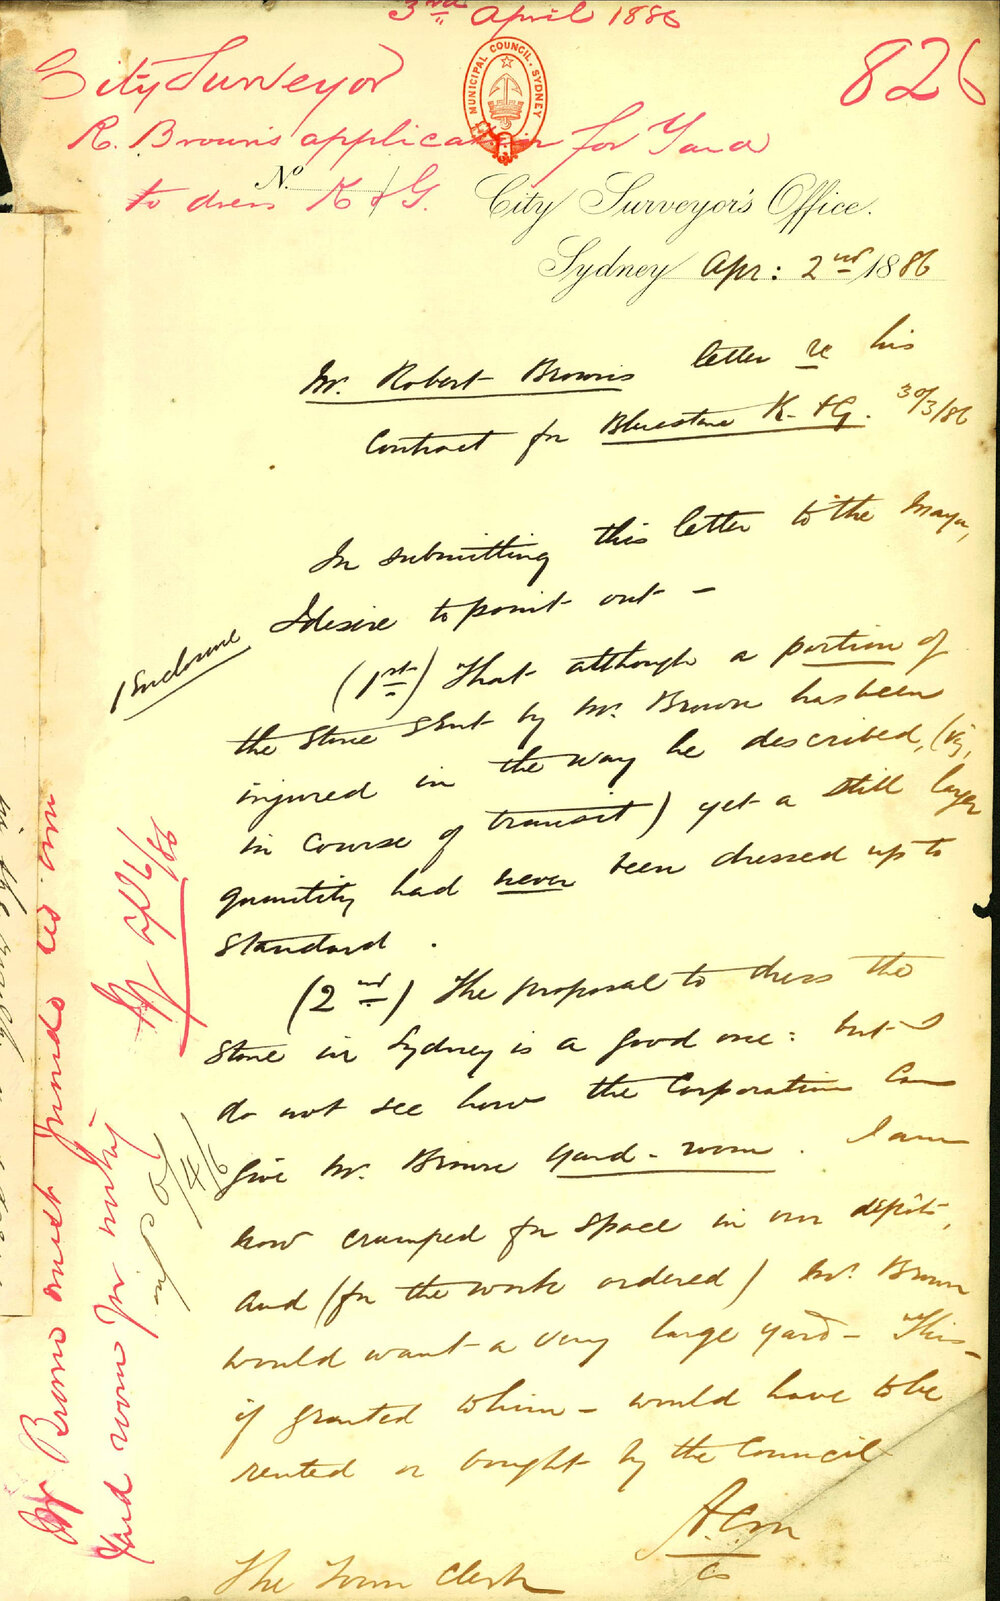 3rd April 1886
City Surveyor
826
R. Brown's application for Yard
to dress K & G.
MUNICIPAL COUNCIL. SYDNEY
No.
City Surveyor's Office.
Sydney Apr: 2nd 1886
Mr. Robert Brown's letter re his
Contract for Bluestone K. & G. 30/3/86
In submitting this letter to the Mayor,
I desire to point out –
1 Enclosure
(1st) That although a portion of
the stone sent by Mr. Brown has been
injured in the way he described, (viz,
in course of transit) yet a still larger
quantity had never been dressed up to
standard.
(2nd) The proposal to dress the
stone in Sydney is a good one: but I
do not see how the Corporation can
give Mr. Brown yard-room. I am
now cramped for space in our depôts,
and (for the work ordered) Mr. Brown
would want a very large yard – This –
if granted to him – would have to be
rented or bought by the Council
A.C.M
CS
The Town Clerk
Mr Brown must provide his own
Yard room for
Apl 6/86
6/4/6